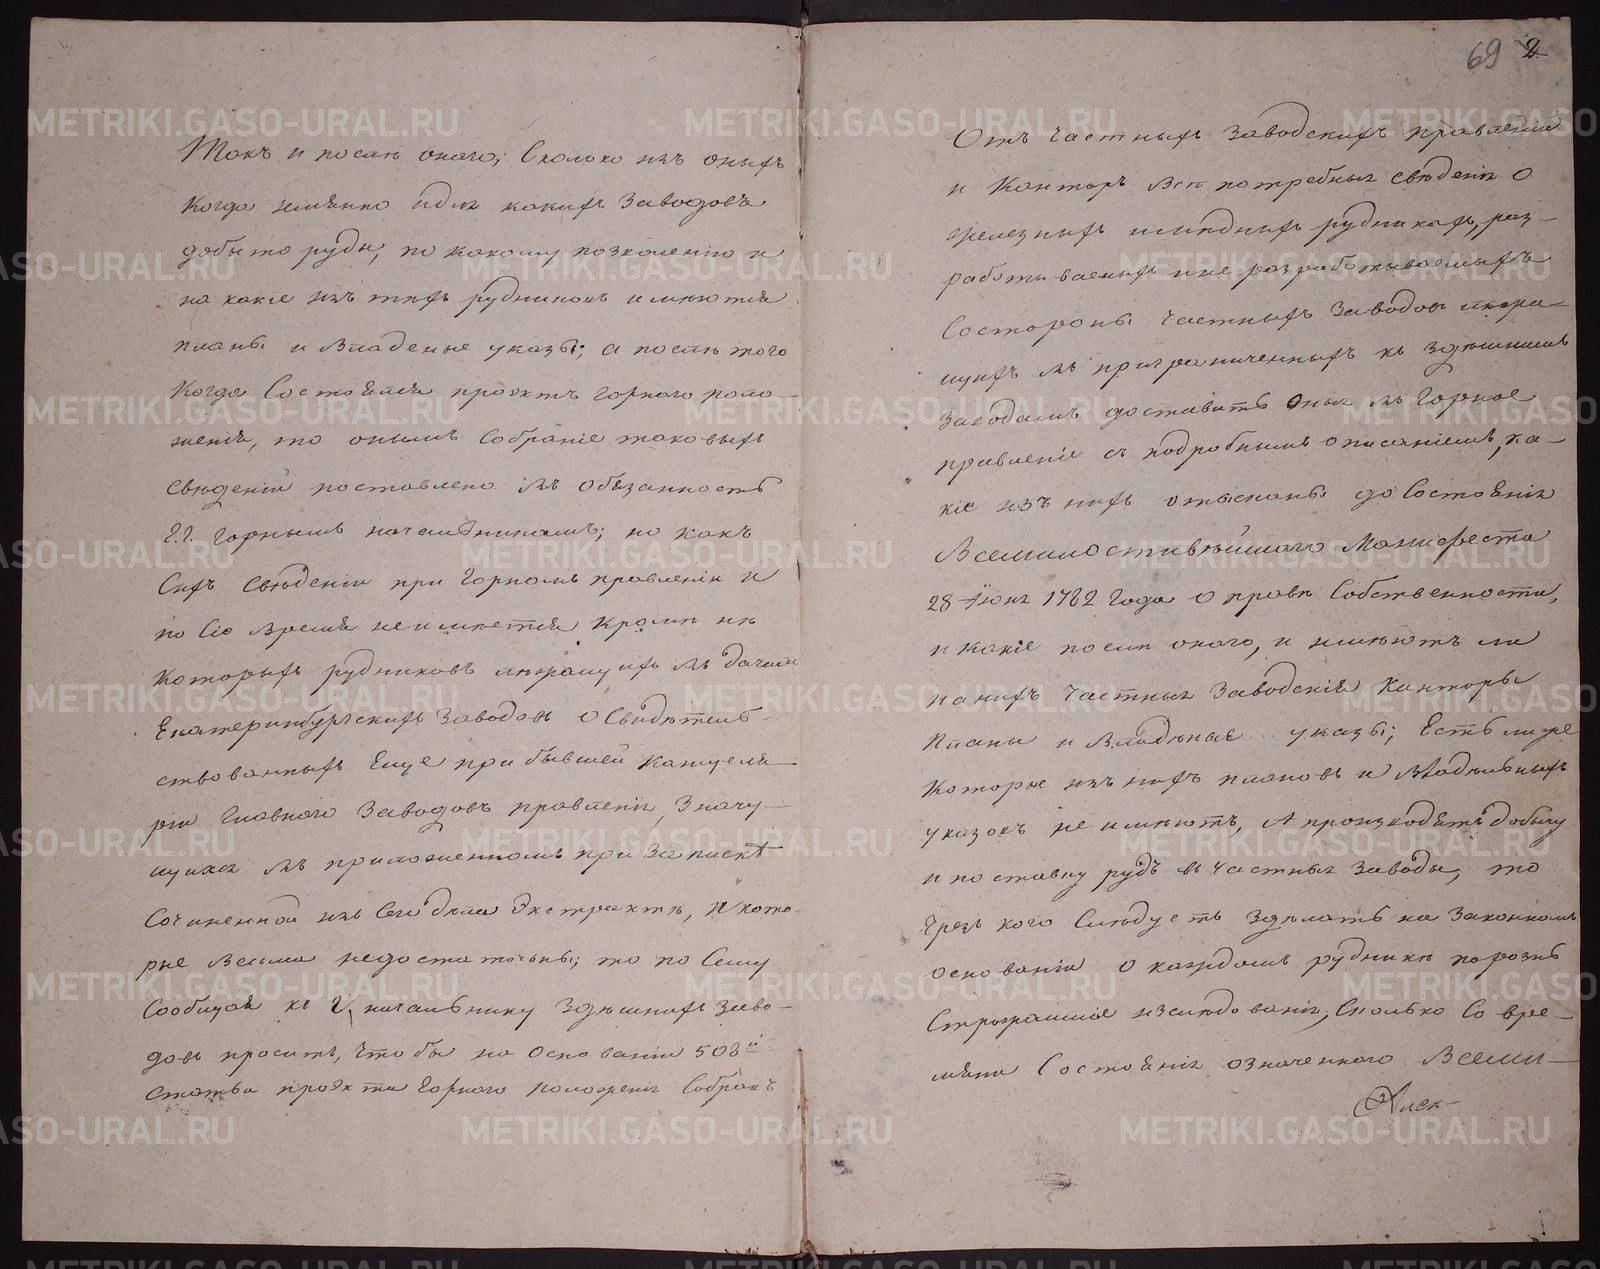 Такъ и послѣ онаго; Сколько изъ оныхъ
Когда имянно и для какихъ Заводовъ
добыто руды, по какому позволенію и
на какіе изъ тѣхъ рудниковъ имѣются
планы и Владеные указы; а послѣ того
Когда Состоялся проэктъ Горного поло-
женія, то онымъ Собраніе таковыхъ
Свѣденій поставлено въ обязанность
Г.Г. Горнымъ начальникамъ; но какъ
Сихъ Свѣденій при Горномъ правленіи и
по Сіе время неимѣется кромѣ нѣ
которыхъ рудниковъ лежащихъ въ дачахъ
Екатеринбургскихъ Заводовъ Освидѣтель-
ствованныхъ Еще при бывшей Канцеля-
ріи Главного Заводовъ правленія, Значу-
щихся въ приложенномъ при Запискѣ
Сочиненной изъ Сего дѣла Экстрактѣ, и кото-
рые весьма недостаточны; то по Сему
Сообщая къ Г. начальнику Здѣшнихъ Заво-
довъ просить, Чтобы на основаніи 508й
Статьи проэкта Горного положенія Собралъ
69 2
Отъ Частныхъ Заводскихъ правленій
и Канторъ всѣ потребныя Свѣденія О
железныхъ и мѣдныхъ рудникахъ, раз-
работываемыхъ и не разработываемыхъ
Состороны Частныхъ Заводовъ лежа-
щихъ въ приграниченныхъ къ здѣшнимъ
Заводамъ доставить оныя въ Горное
правленіе съ подробнымъ описаніемъ, ка-
кіе изъ нихъ отысканы до Состоянія
Всемилостивѣйшаго Манифеста
28 Іюня 1782 Года О правѣ Собственности,
и какіе послѣ онаго, и имѣютъ ли
на нихъ Частныя Заводскія Канторы
Планы и Владѣныя указы; Есть лиже
Которые изъ нихъ плановъ и Владѣнныхъ
указовъ не имѣютъ, А производятъ добычу
и поставку рудъ въ Частныя Заводы, то
Чрезъ кого Слѣдуетъ Здѣлать на Законномъ
основаніи О каждомъ рудникѣ порознь
Строжайшіе изслѣдованія, Сколько Со вре-
мѣни Состоянія означенного Всеми-